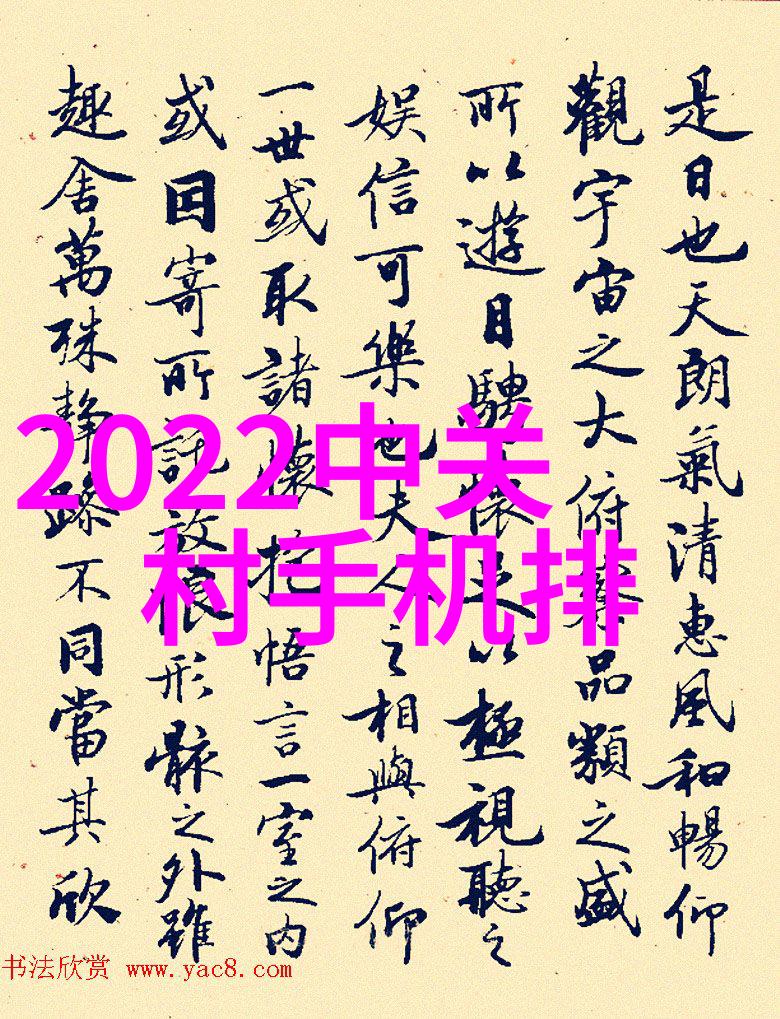 是日也天朗氣清惠風和暢仰
觀宇宙之大俯察品類之盛
所以遊目騁懷足以極視聽之
娛信可樂也夫人之相與俯仰
一世或取諸懷抱悟言一室之内
或因寄所託放浪形骸之外雖
趣舍萬殊静躁不同當其欣
2022中关
村手机排
书法欣赏 www.yac8.com